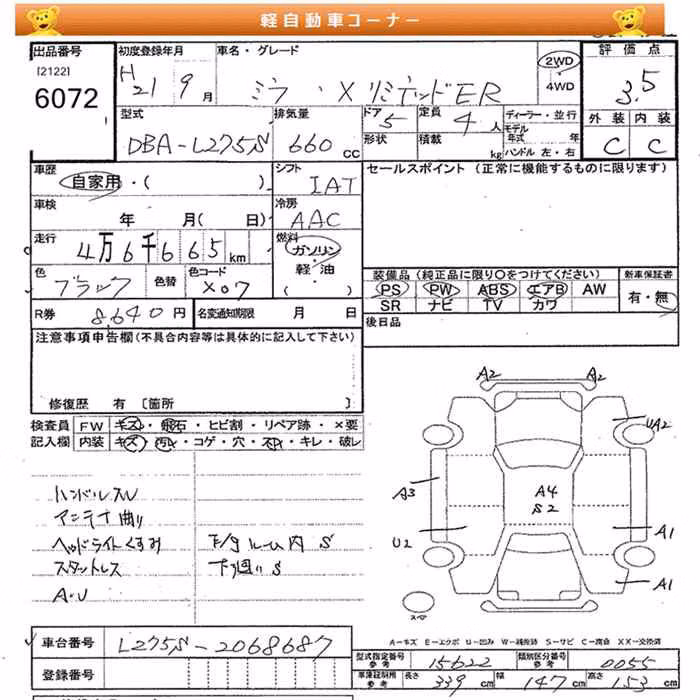 軽自動車コーナー
出品番号 初度登録年月 車名・グレード 評価点
[2122]
6072
H21 9月 ミラ・X リミテッドER 2WD
・
4WD
3.5
型式 排気量 ドア 定員 ディーラー・並行 外装 内装
DBA-L275S 660cc 5 4人 モデル年式 年 C C
形状 積載 kg ハンドル 左・右
車歴 シフト セールスポイント (正常に機能するものに限ります)
自家用・( ) IAT
車検 冷房
年 月( 日) AAC
走行 燃料
4万6千665km ガソリン
・
軽油
( )
色 色替 色コード
ブラック X07
装備品 (純正品に限り○をつけてください) 新車保証書
PS PW ABS エアB AW 有・無
SR ナビ TV カワ
R券 8,640円 名変通知期限 月 日 後日品
注意事項申告欄(不具合内容等は具体的に記入して下さい)
修復歴 有 〔箇所 〕
検査員 FW キズ・飛石・ヒビ割・リペア跡・×要
記入欄 内装 キズ・汚れ・コゲ・穴・スレ・キレ・破レ
ハンドルスレ
アンテナ曲り
ヘッドライトくすみ
スタットレス
A・U
下回り S
A2 A2
UA2
A3 A4
S2
U2 A1
A1
スペア
A=キズ E=エクボ U=凹み W=補修跡 S=サビ C=腐食 XX=交換済
車台番号 L275S-2068687
登録番号
型式指定番号 参考 15622 類別区分番号 参考 0055
車検証記載 参考 長さ 339cm 幅 147cm 高さ 153cm